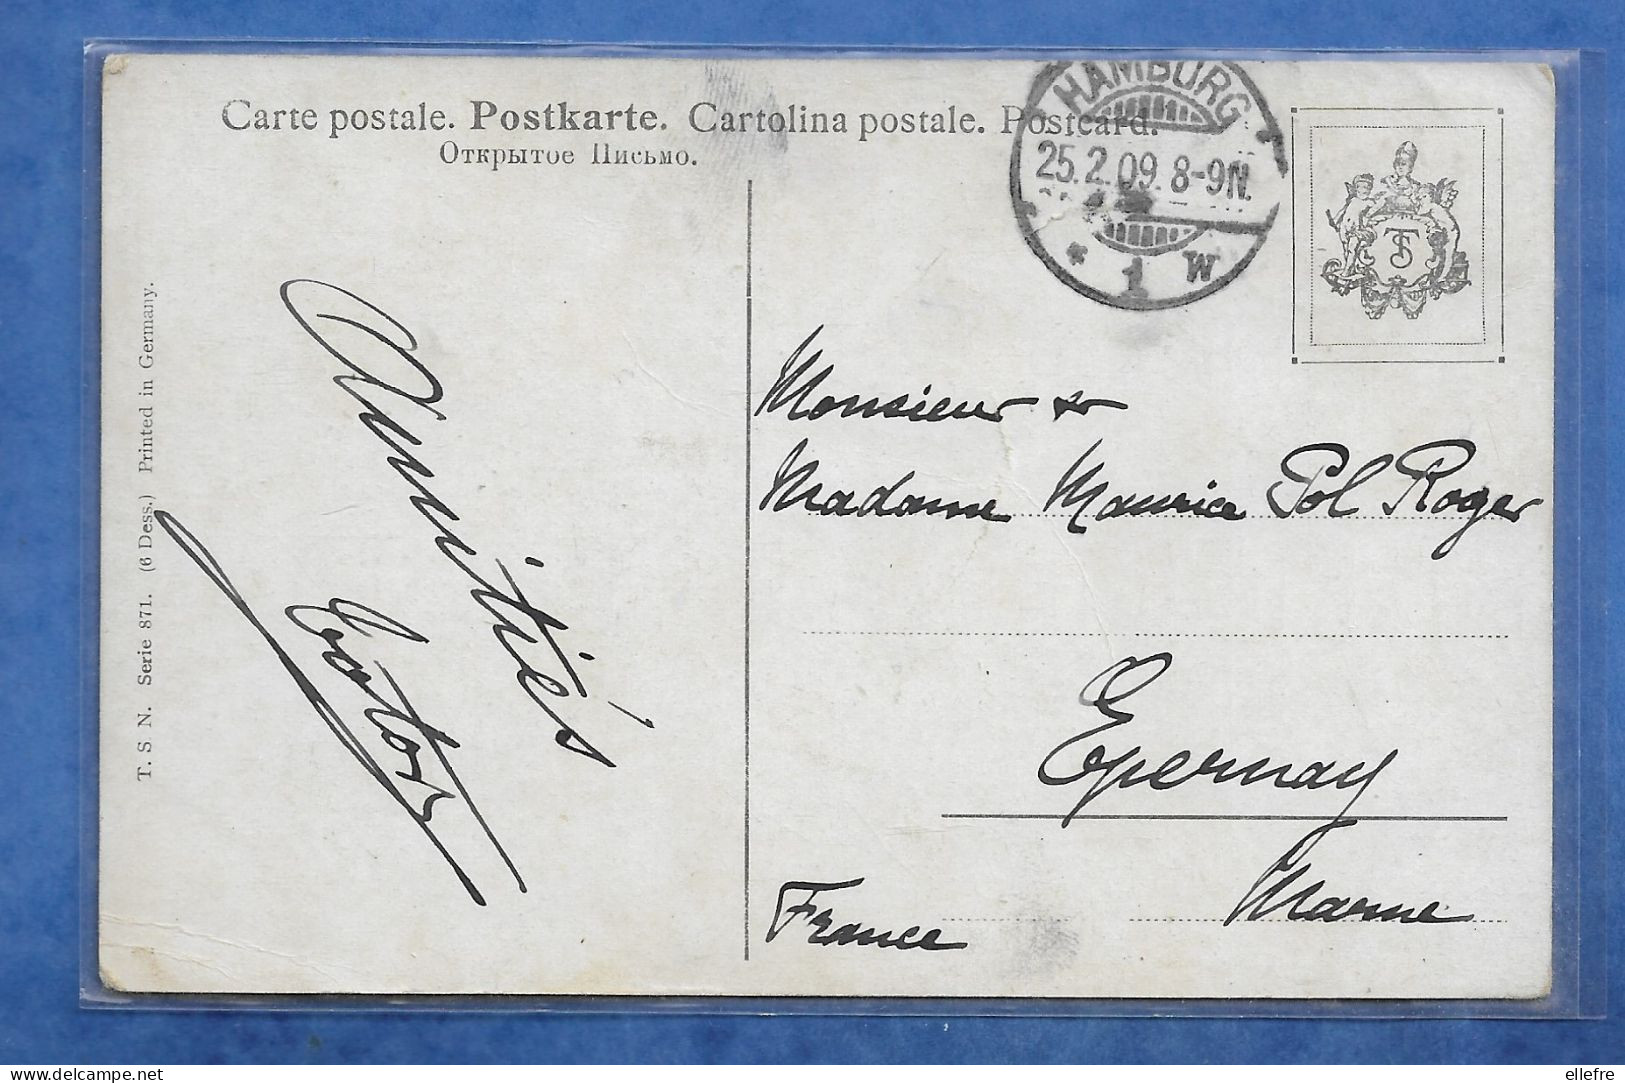 Carte postale. Postkarte. Cartolina postale. Postcard.
Открытое Письмо.
HAMBURG
25.2.09. 8-9N.
* 1 W
TS
T. S. N. Serie 871. (6 Dess.) Printed in Germany.
Amitiés
Monsieur et
Madame Maurice Pol Roger
Epernay
Marne
France
delcampe.net
ellefre